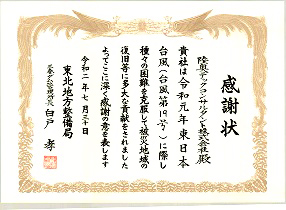 感謝状
陸奥テックコンサルタント株式会社殿
貴社は令和元年東日本
台風(台風第19号)に際し
種々の困難を克服して被災地域の
復旧等に多大な貢献をされました
よってここに深く感謝の意を表します
令和二年七月三十日
東北地方整備局
白戸 孝